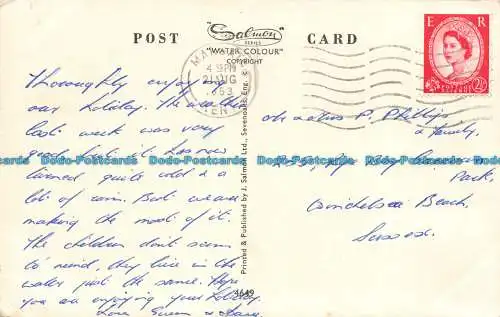 POST CARD
Salmon
SERIES
"WATER COLOUR"
COPYRIGHT
E R
2½
4 45 PM
21 AUG
1963
KENT
Thoroughly enjoying
our holiday. The weather
last week was very
good but it has now
turned quite cold & a
lot of rain. But we are
making the most of it.
The children don't seem
to mind, they live in the
water just the same. Hope
you are enjoying your holiday.
Love
Phillips
& family,
Park,
Winchelsea Beach,
Sussex.
Printed & Published by J. Salmon Ltd., Sevenoaks, Eng. ©
4649
Dodo-Postcards Dodo-Postcards Dodo-Postcards Dodo-Postcards